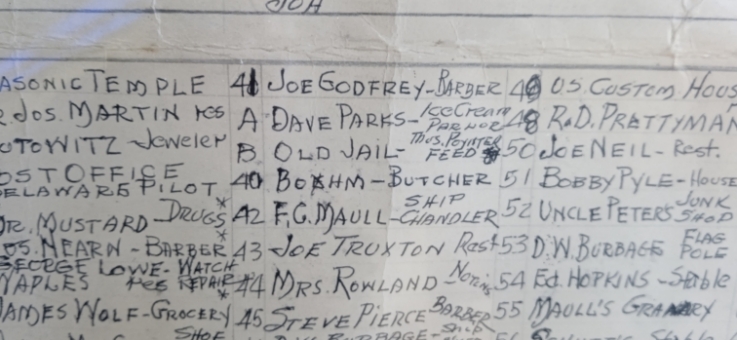 ASONIC TEMPLE
JOS. MARTIN res
OTOWITZ - Jeweler
OST OFFICE
ELAWARE PILOT
DR. MUSTARD - DRUGS *
OS. NEARN - BARBER *
GEORGE LOWE - WATCH
NAPLES res REPAIR *
JAMES WOLF - GROCERY
SHOE
41 JOE GODFREY - BARBER
A DAVE PARKS - Ice Cream PARLOR
B OLD JAIL - Thos. POYNTER FEED
40 BOEHM - BUTCHER
42 F.G. MAULL - SHIP CHANDLER
43 JOE TRUXTON Rest
44 MRS. ROWLAND
45 STEVE PIERCE BARBER Shop
BURBAGE -
49 U.S. CUSTOM HOUS
48 R.D. PRETTYMAN
50 JOE NEIL - Rest.
51 BOBBY PYLE - HOUSE
52 UNCLE PETERS JUNK SHOP
53 D.W. BURBAGE FLAG POLE
54 Ed. HOPKINS - Stable
55 MAULL'S GRANARY